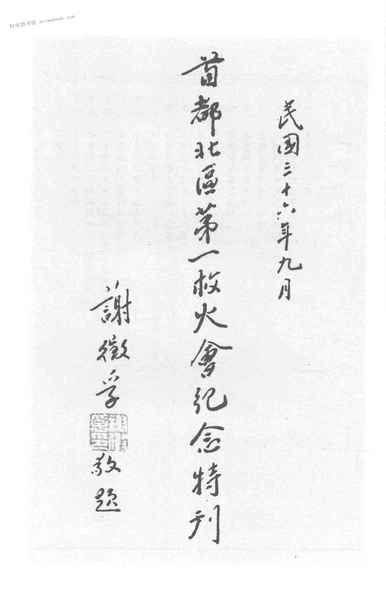 民國三十六年九月
首都北區第一救火會紀念特刊
謝徵孚敬題